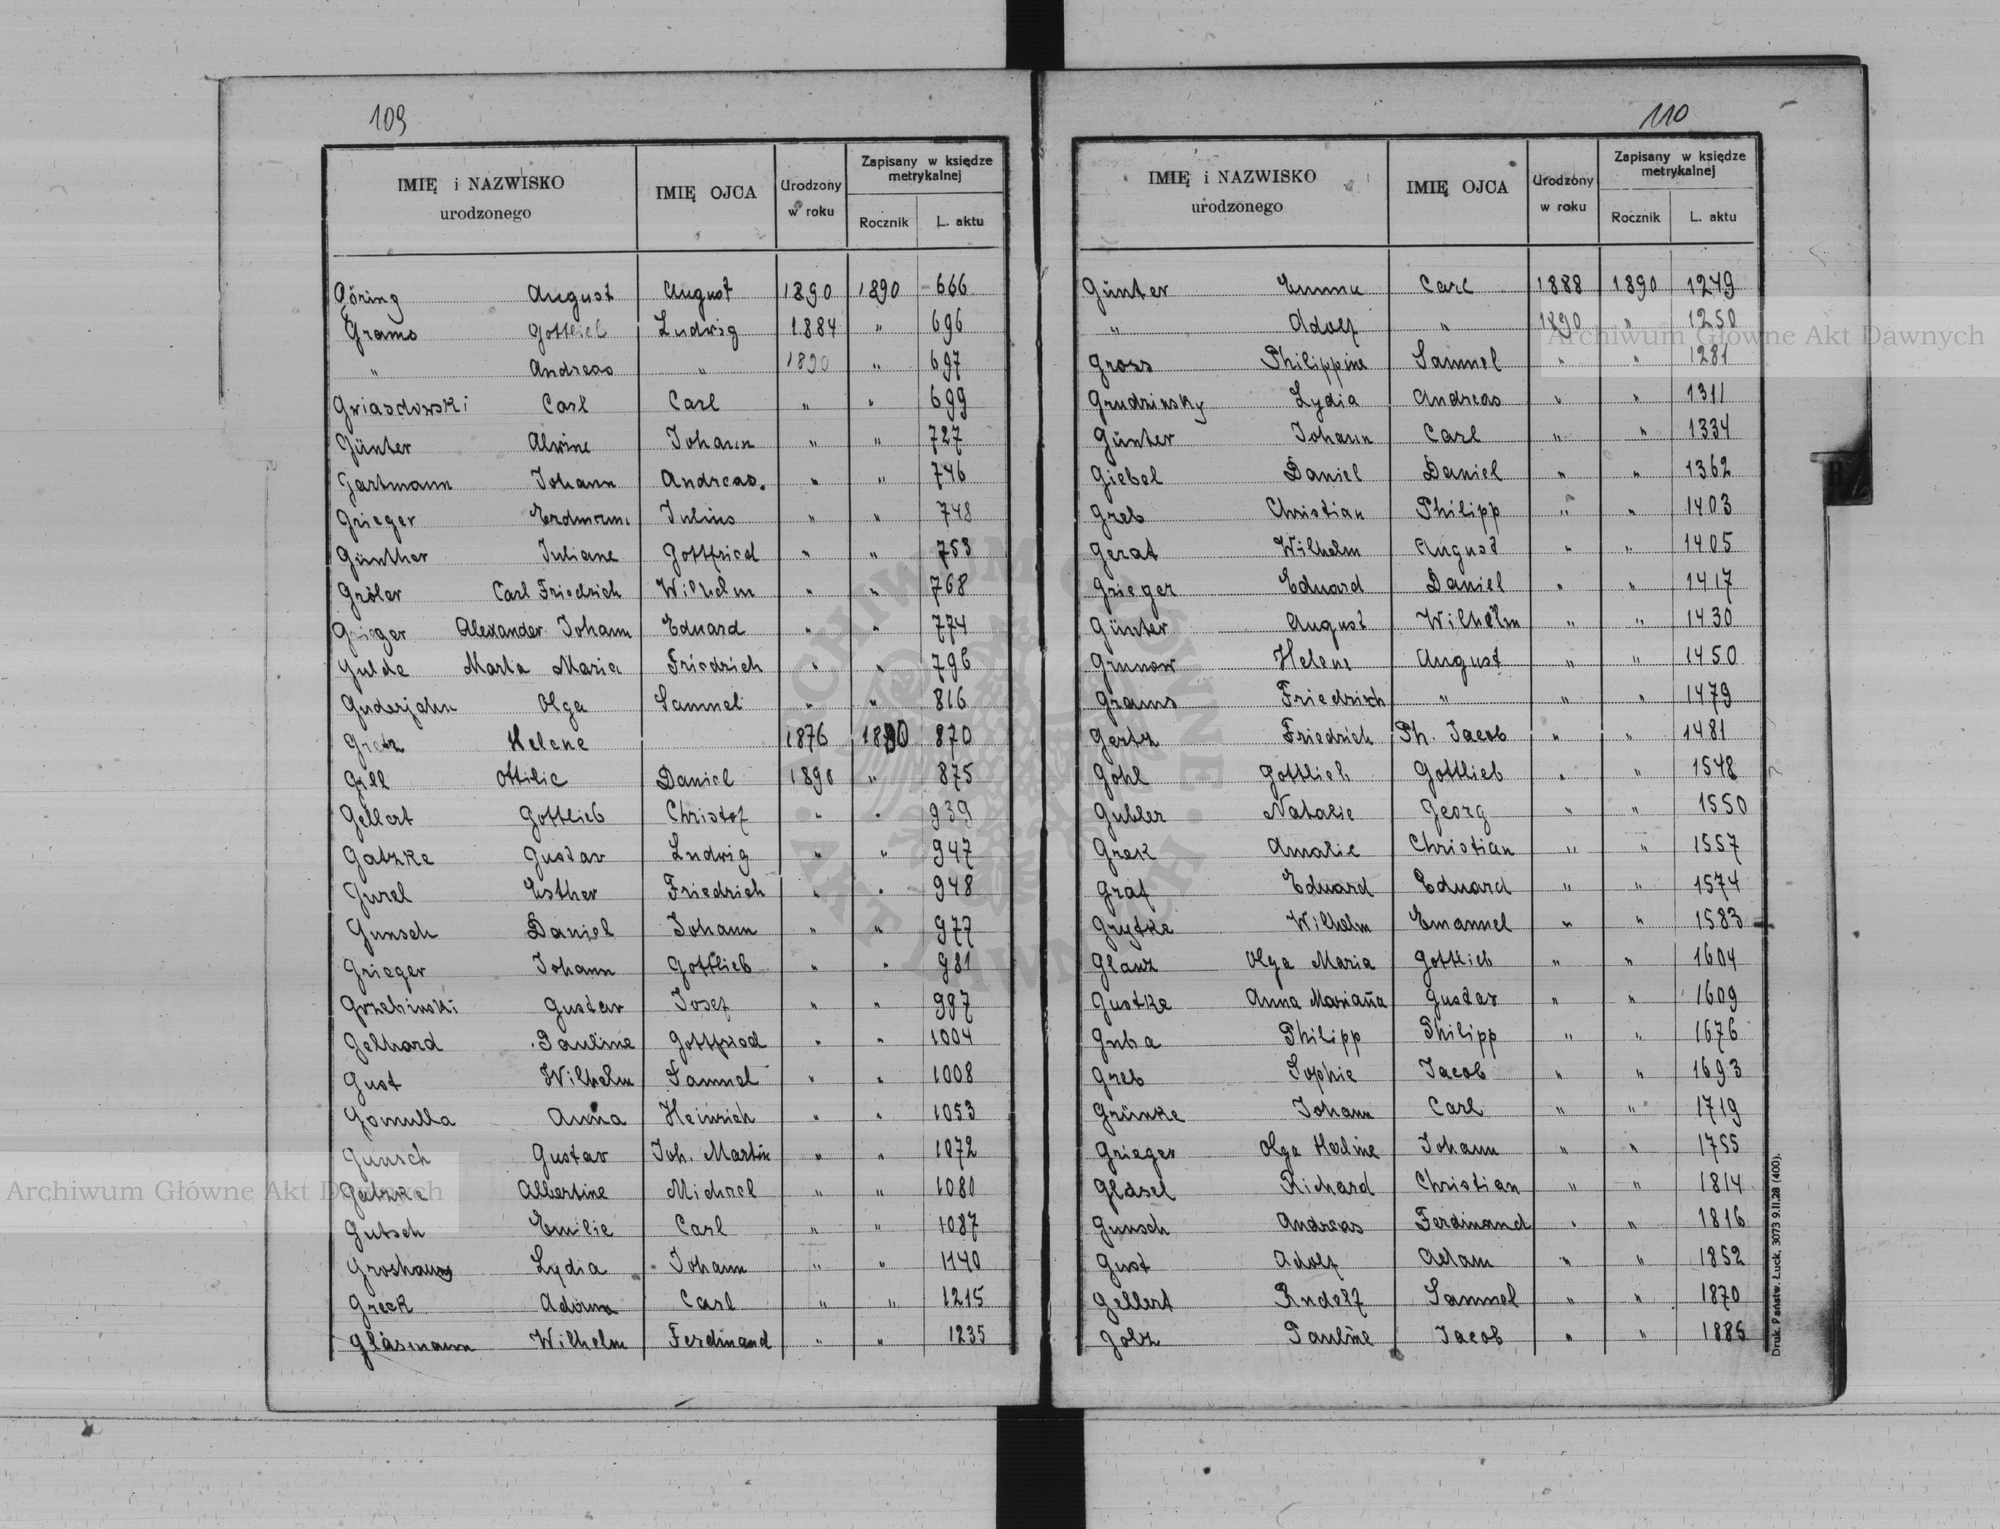 109
IMIĘ i NAZWISKO urodzonego IMIĘ OJCA Urodzony w roku Zapisany w księdze metrykalnej Rocznik L. aktu
Göring August August 1890 1890 666
Grams Gottlieb Ludwig 1884 " 696
" Andreas " 1890 " 697
Griasdowski Carl Carl " " 699
Günter Alwine Johann " " 727
Gartmann Johann Andreas. " " 746
Grieger Erdmann Julius " " 748
Günther Juliane Gottfried " " 753
Gröler Carl Friedrich Wilhelm " " 768
Grieger Alexander Johann Eduard " " 774
Gulde Marta Maria Friedrich " " 796
Guderjahn Olga Samuel " " 816
Gretz Helene 1876 1890 870
Gill Ottilie Daniel 1890 " 875
Gellert Gottlieb Christof " " 939
Gatzke Gustav Ludwig " " 947
Jurel Esther Friedrich " " 948
Gunsch Daniel Johann " " 977
Grieger Johann Gottlieb " " 981
Grzebinski Gustav Josef " " 987
Gelhard Pauline Gottfried " " 1004
Gust Wilhelm Samuel " " 1008
Gomulla Anna Heinrich " " 1053
Gunsch Gustav Joh. Martin " " 1072
Gatzke Albertine Michael " " 1080
Gutsch Emilie Carl " " 1087
Groshans Lydia Johann " " 1140
Greck Adorna Carl " " 1215
Gläsmann Wilhelm Ferdinand " " 1235
110
IMIĘ i NAZWISKO urodzonego IMIĘ OJCA Urodzony w roku Zapisany w księdze metrykalnej Rocznik L. aktu
Günter Emma Carl 1888 1890 1249
" Adolf " 1890 " 1250
Gross Philippine Samuel " " 1281
Grudzinsky Lydia Andreas " " 1311
Günter Johann Carl " " 1334
Giebel Daniel Daniel " " 1362
Greb Christian Philipp " " 1403
Gerat Wilhelm August " " 1405
Grieger Eduard Daniel " " 1417
Günter August Wilhelm " " 1430
Grunow Helene August " " 1450
Grams Friedrich " " " 1479
Gertz Friedrich Ph. Jacob " " 1481
Gohl Gottlieb Gottlieb " " 1548
Gubler Natalie Georg " " 1550
Grek Amalie Christian " " 1557
Graf Eduard Eduard " " 1574
Grytke Wilhelm Emanuel " " 1583
Glanz Olga Maria Gottlieb " " 1604
Gustke Anna Mariana Gustav " " 1609
Guba Philipp Philipp " " 1676
Greb Sophie Jacob " " 1693
Grünke Johann Carl " " 1719
Grieger Olga Hedine Johann " " 1755
Gläsel Richard Christian " " 1814
Gunsch Andreas Ferdinand " " 1816
Gust Adolf Adam " " 1852
Gellert Rudolf Samuel " " 1870
Golz Pauline Jacob " " 1885
Druk. Państw. Łuck. 3073 9.II.28 (400).
Archiwum Główne Akt Dawnych
Archiwum Główne Akt Dawnych
ARCHIWUM GŁÓWNE AKT DAWNYCH